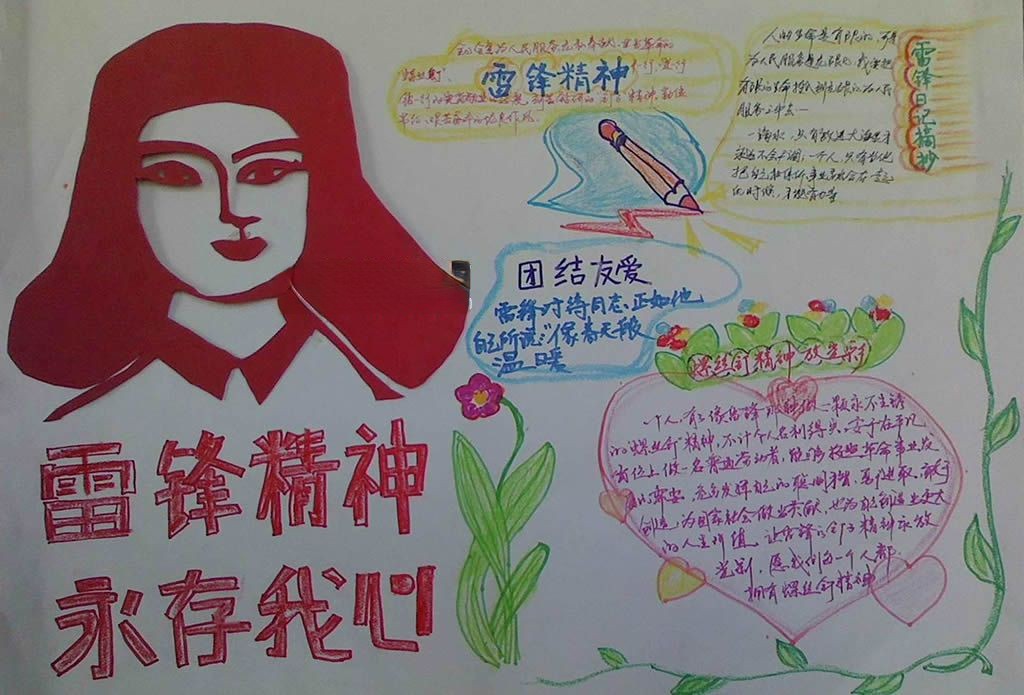 雷锋精神
永存我心
雷锋精神
雷锋日记摘抄
人的生命是有限的,可是
为人民服务是无限的,我要把
有限的生命投入到无限的为人民
服务之中去
一滴水,只有放进大海里才
永远不会干涸,一个人,只有当他
把自己和集体事业融合在一起
的时候,才能有力量
团结友爱
雷锋对待同志,正如他
自己所说:“像春天般
温暖
螺丝钉精神放光彩
一个人,有了像雷锋那种做一颗永不生锈
的螺丝钉精神,不计个人名利得失,安于在平凡
岗位上做一名普通劳动者
创造,为国家社会做出贡献,也为自己创造出更大
的人生价值,让雷锋的钉子精神永放
光彩,愿我们每一个人都
拥有螺丝钉精神